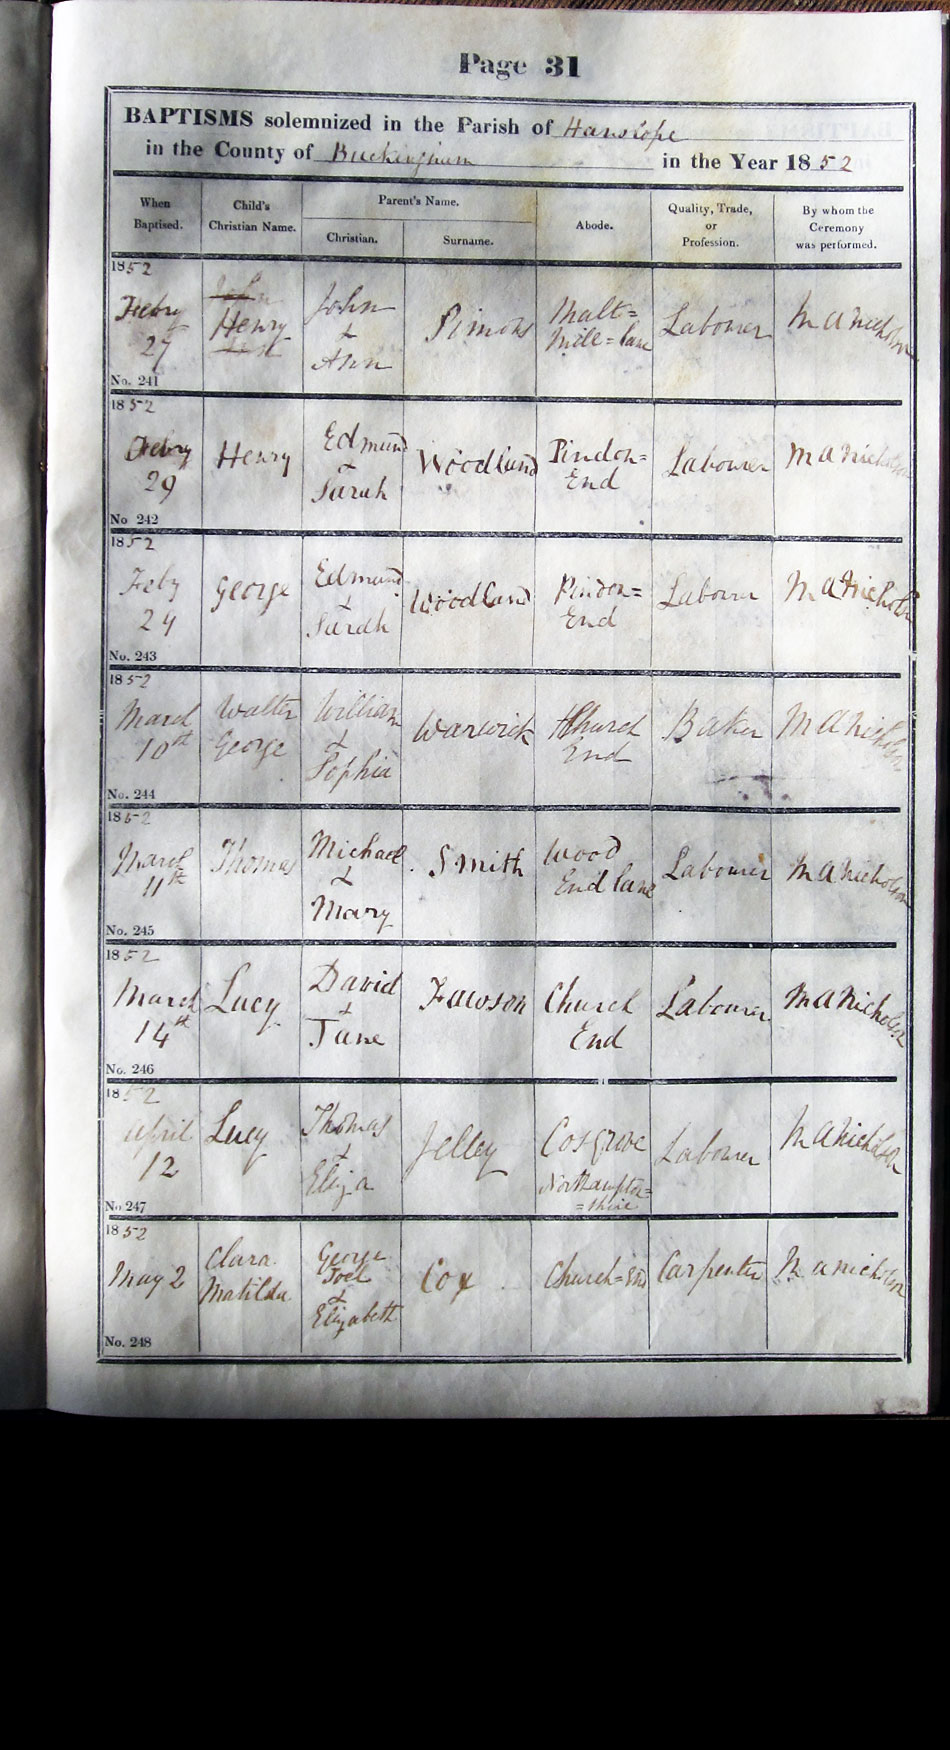 Page 31
BAPTISMS solemnized in the Parish of Hanslope
in the County of Buckingham in the Year 1852
When Baptised.
Child's Christian Name.
Parent's Name.
Christian.
Surname.
Abode.
Quality, Trade, or Profession.
By whom the Ceremony was performed.
1852
Febry
29
No. 241
John
Henry
John
&
Ann
Simons
Malt=
Mill=lane
Labourer
M A Nicholson
1852
Febry
29
No 242
Henry
Edmund
&
Sarah
Woodland
Pindon=
End
Labourer
M A Nicholson
1852
Feby
29
No. 243
George
Edmund
&
Sarah
Woodland
Pindon=
End
Labourer
M A Nicholson
1852
March
10th
No. 244
Walter
George
William
&
Sophia
Warwick
Church
End
Baker
M A Nicholson
1852
March
11th
No. 245
Thomas
Michael
&
Mary
Smith
Wood
End lane
Labourer
M A Nicholson
1852
March
14th
No. 246
Lucy
David
&
Jane
Fawson
Church
End
Labourer
M A Nicholson
1852
April
12
No 247
Lucy
Thomas
&
Eliza
Jelley
Cosgrove
Northampton=
=shire
Labourer
M A Nicholson
1852
May 2
No. 248
Clara
Matilda
George
Joel
&
Elizabeth
Cox
Church=End
Carpenter
M A Nicholson